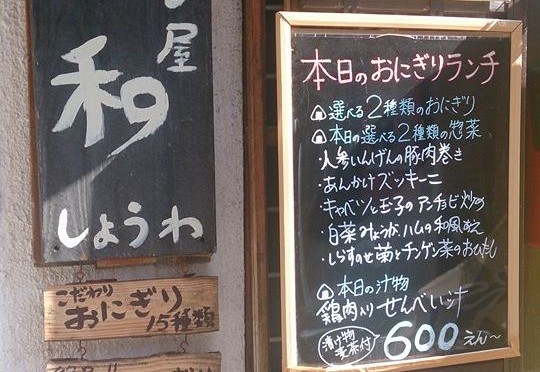 屋
和
しょうわ
こだわり
おにぎり
15種類
本日のおにぎりランチ
選べる2種類のおにぎり
本日の選べる2種類の惣菜
・人参いんげんの豚肉巻き
・あんかけズッキーニ
・キャベツと玉子のアンチョビ炒め
・白菜みょうがハムの和風あえ
・しらすのせ菊とチンゲン菜のおひたし
本日の汁物
鶏肉入りせんべい汁
漬け物
麦茶付
600えん〜